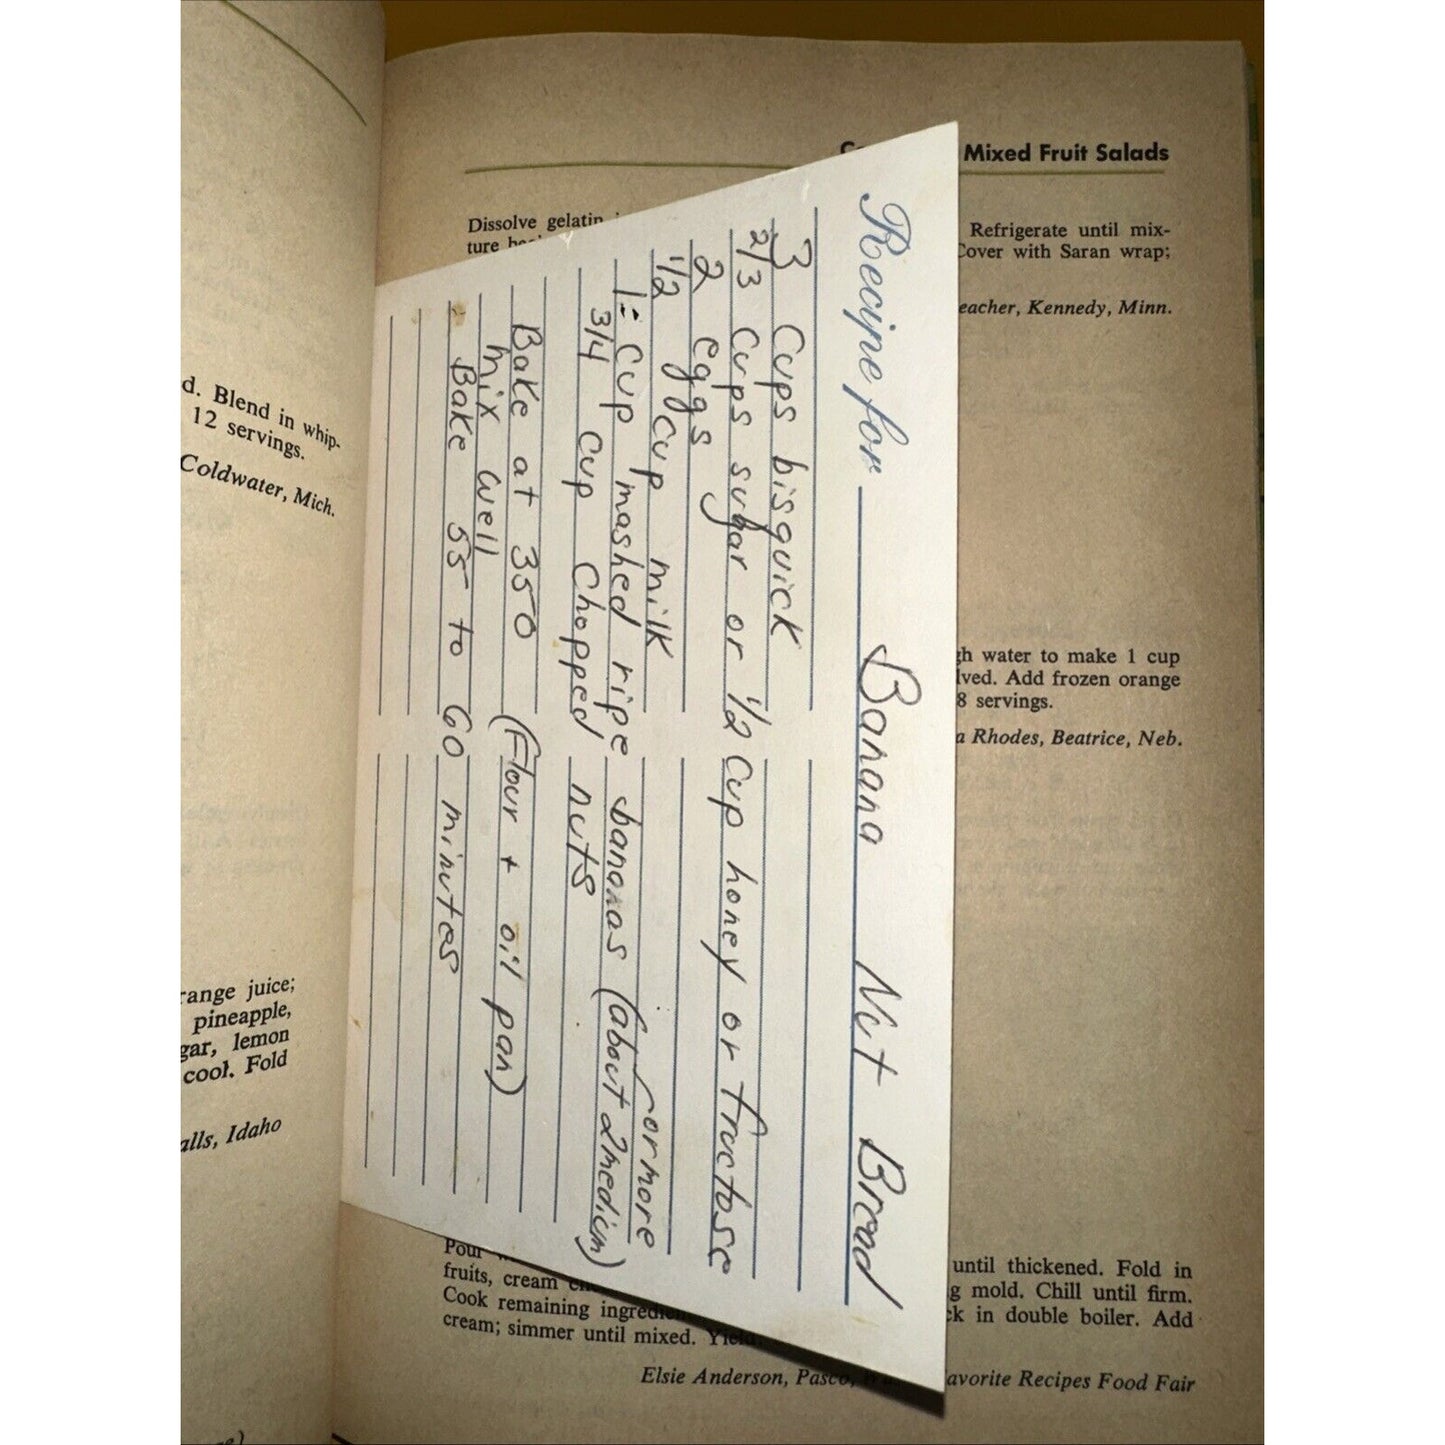 Recipe for Banana Nut Bread
3 cups bisquick
2/3 cups sugar or 1/2 cup honey or fructose
2 eggs
1/2 cup milk
or more
1 cup mashed ripe bananas (about 2 medium)
3/4 cup chopped nuts
Bake at 350 (flour + oil pan)
mix well
Bake 55 to 60 minutes
d. Blend in whip-
12 servings.
Coldwater, Mich.
range juice;
pineapple,
gar, lemon
cool. Fold
alls, Idaho
Mixed Fruit Salads
Dissolve gelatin
Refrigerate until mix-
ture
Cover with Saran wrap;
eacher, Kennedy, Minn.
gh water to make 1 cup
lved. Add frozen orange
8 servings.
a Rhodes, Beatrice, Neb.
Pour
until thickened. Fold in
fruits, cream
g mold. Chill until firm.
Cook remaining
ck in double boiler. Add
cream; simmer until mixed.
Elsie Anderson, Pasco,
avorite Recipes Food Fair